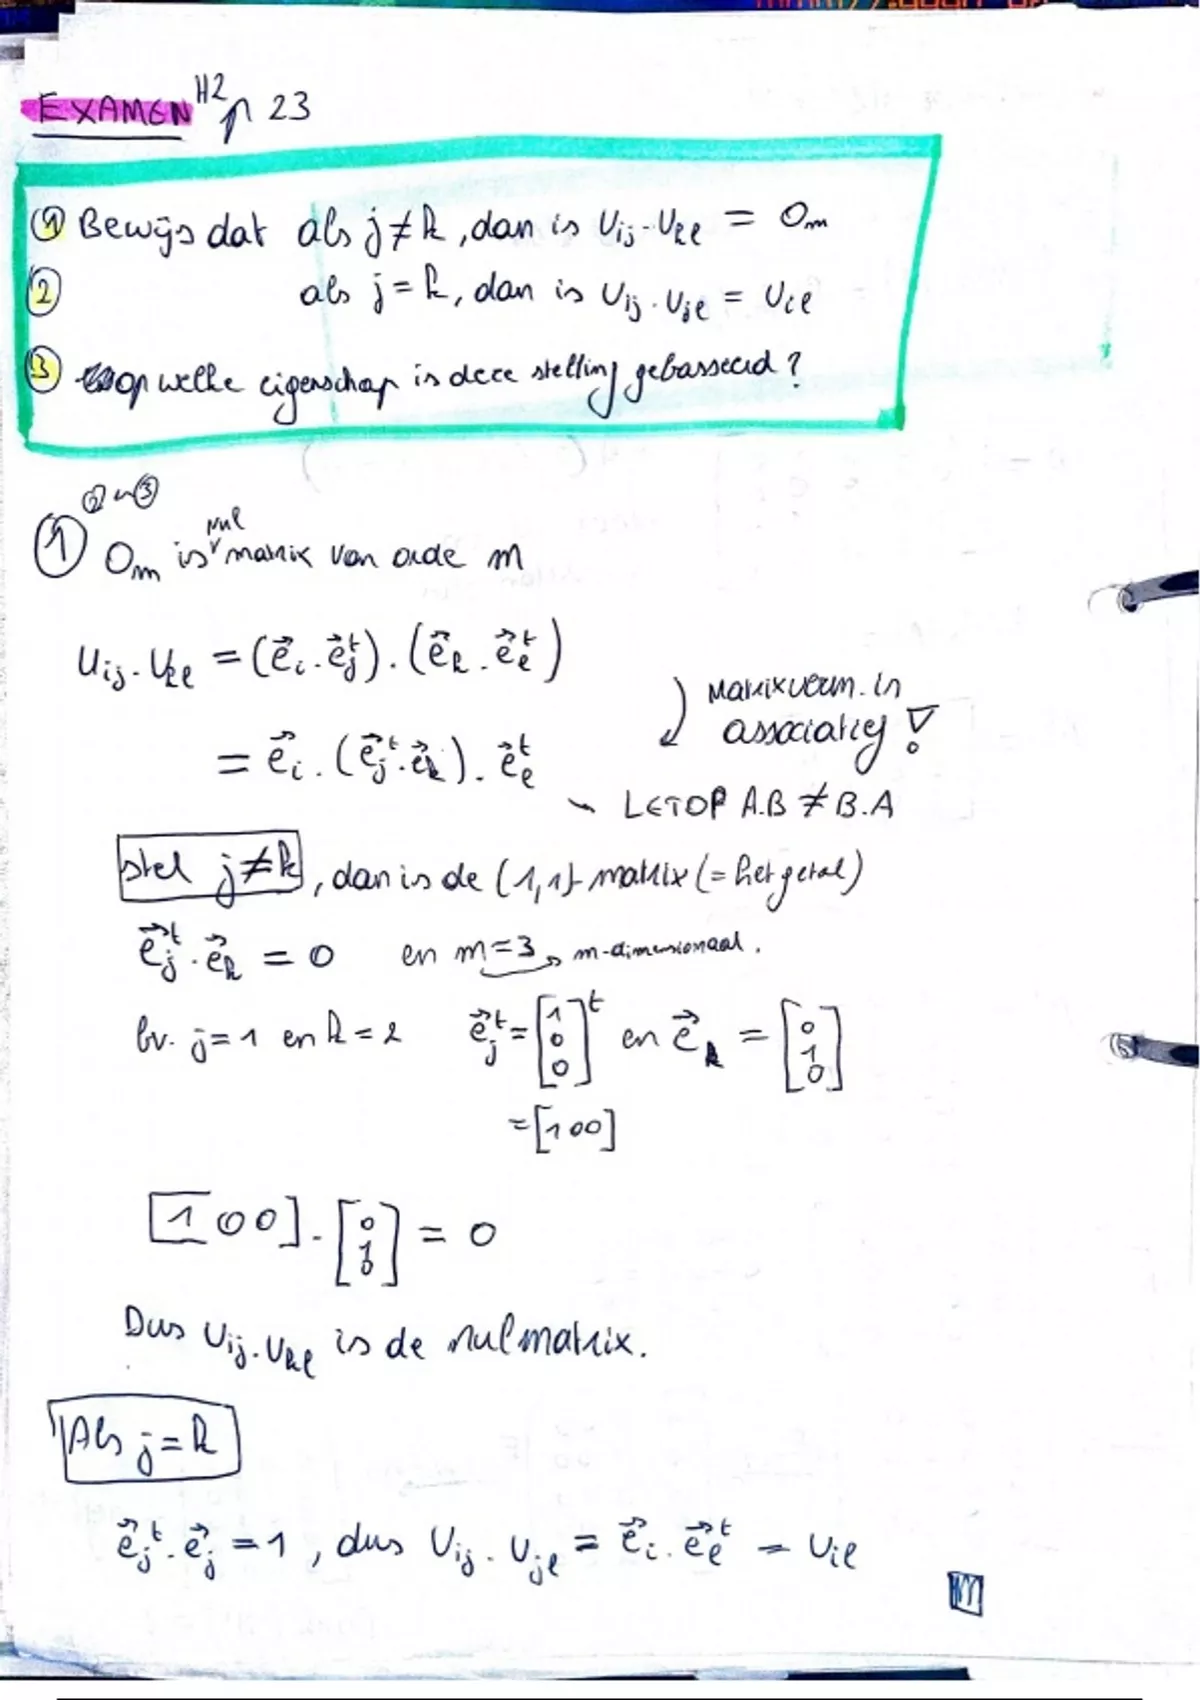 EXAMEN H2 p 23
① Bewijs dat als j ≠ k, dan is Uij · Ukl = Om
② als j = k, dan is Uij · Ujl = Uil
③ op welke eigenschap is deze stelling gebasseerd?
② ③
① Om is nul matrix van orde m
Uij · Ukl = (e⃗i · e⃗jᵗ) · (e⃗k · e⃗lᵗ)
Matrixverm. is
associatief !
= e⃗i · (e⃗jᵗ · e⃗k) · e⃗lᵗ
LETOP A.B ≠ B.A
stel j ≠ k, dan is de (1,1)-matrix (= het getal)
e⃗jᵗ · e⃗k = 0 en m = 3 → m-dimensionaal.
bv. j = 1 en k = 2 e⃗jᵗ = [1 0 0]ᵗ en e⃗k = [0 1 0]
= [1 0 0]
[1 0 0] · [0 1 0] = 0
Dus Uij · Ukl is de nulmatrix.
Als j = k
e⃗jᵗ · e⃗j = 1, dus Uij · Ujl = e⃗i · e⃗lᵗ = Uil